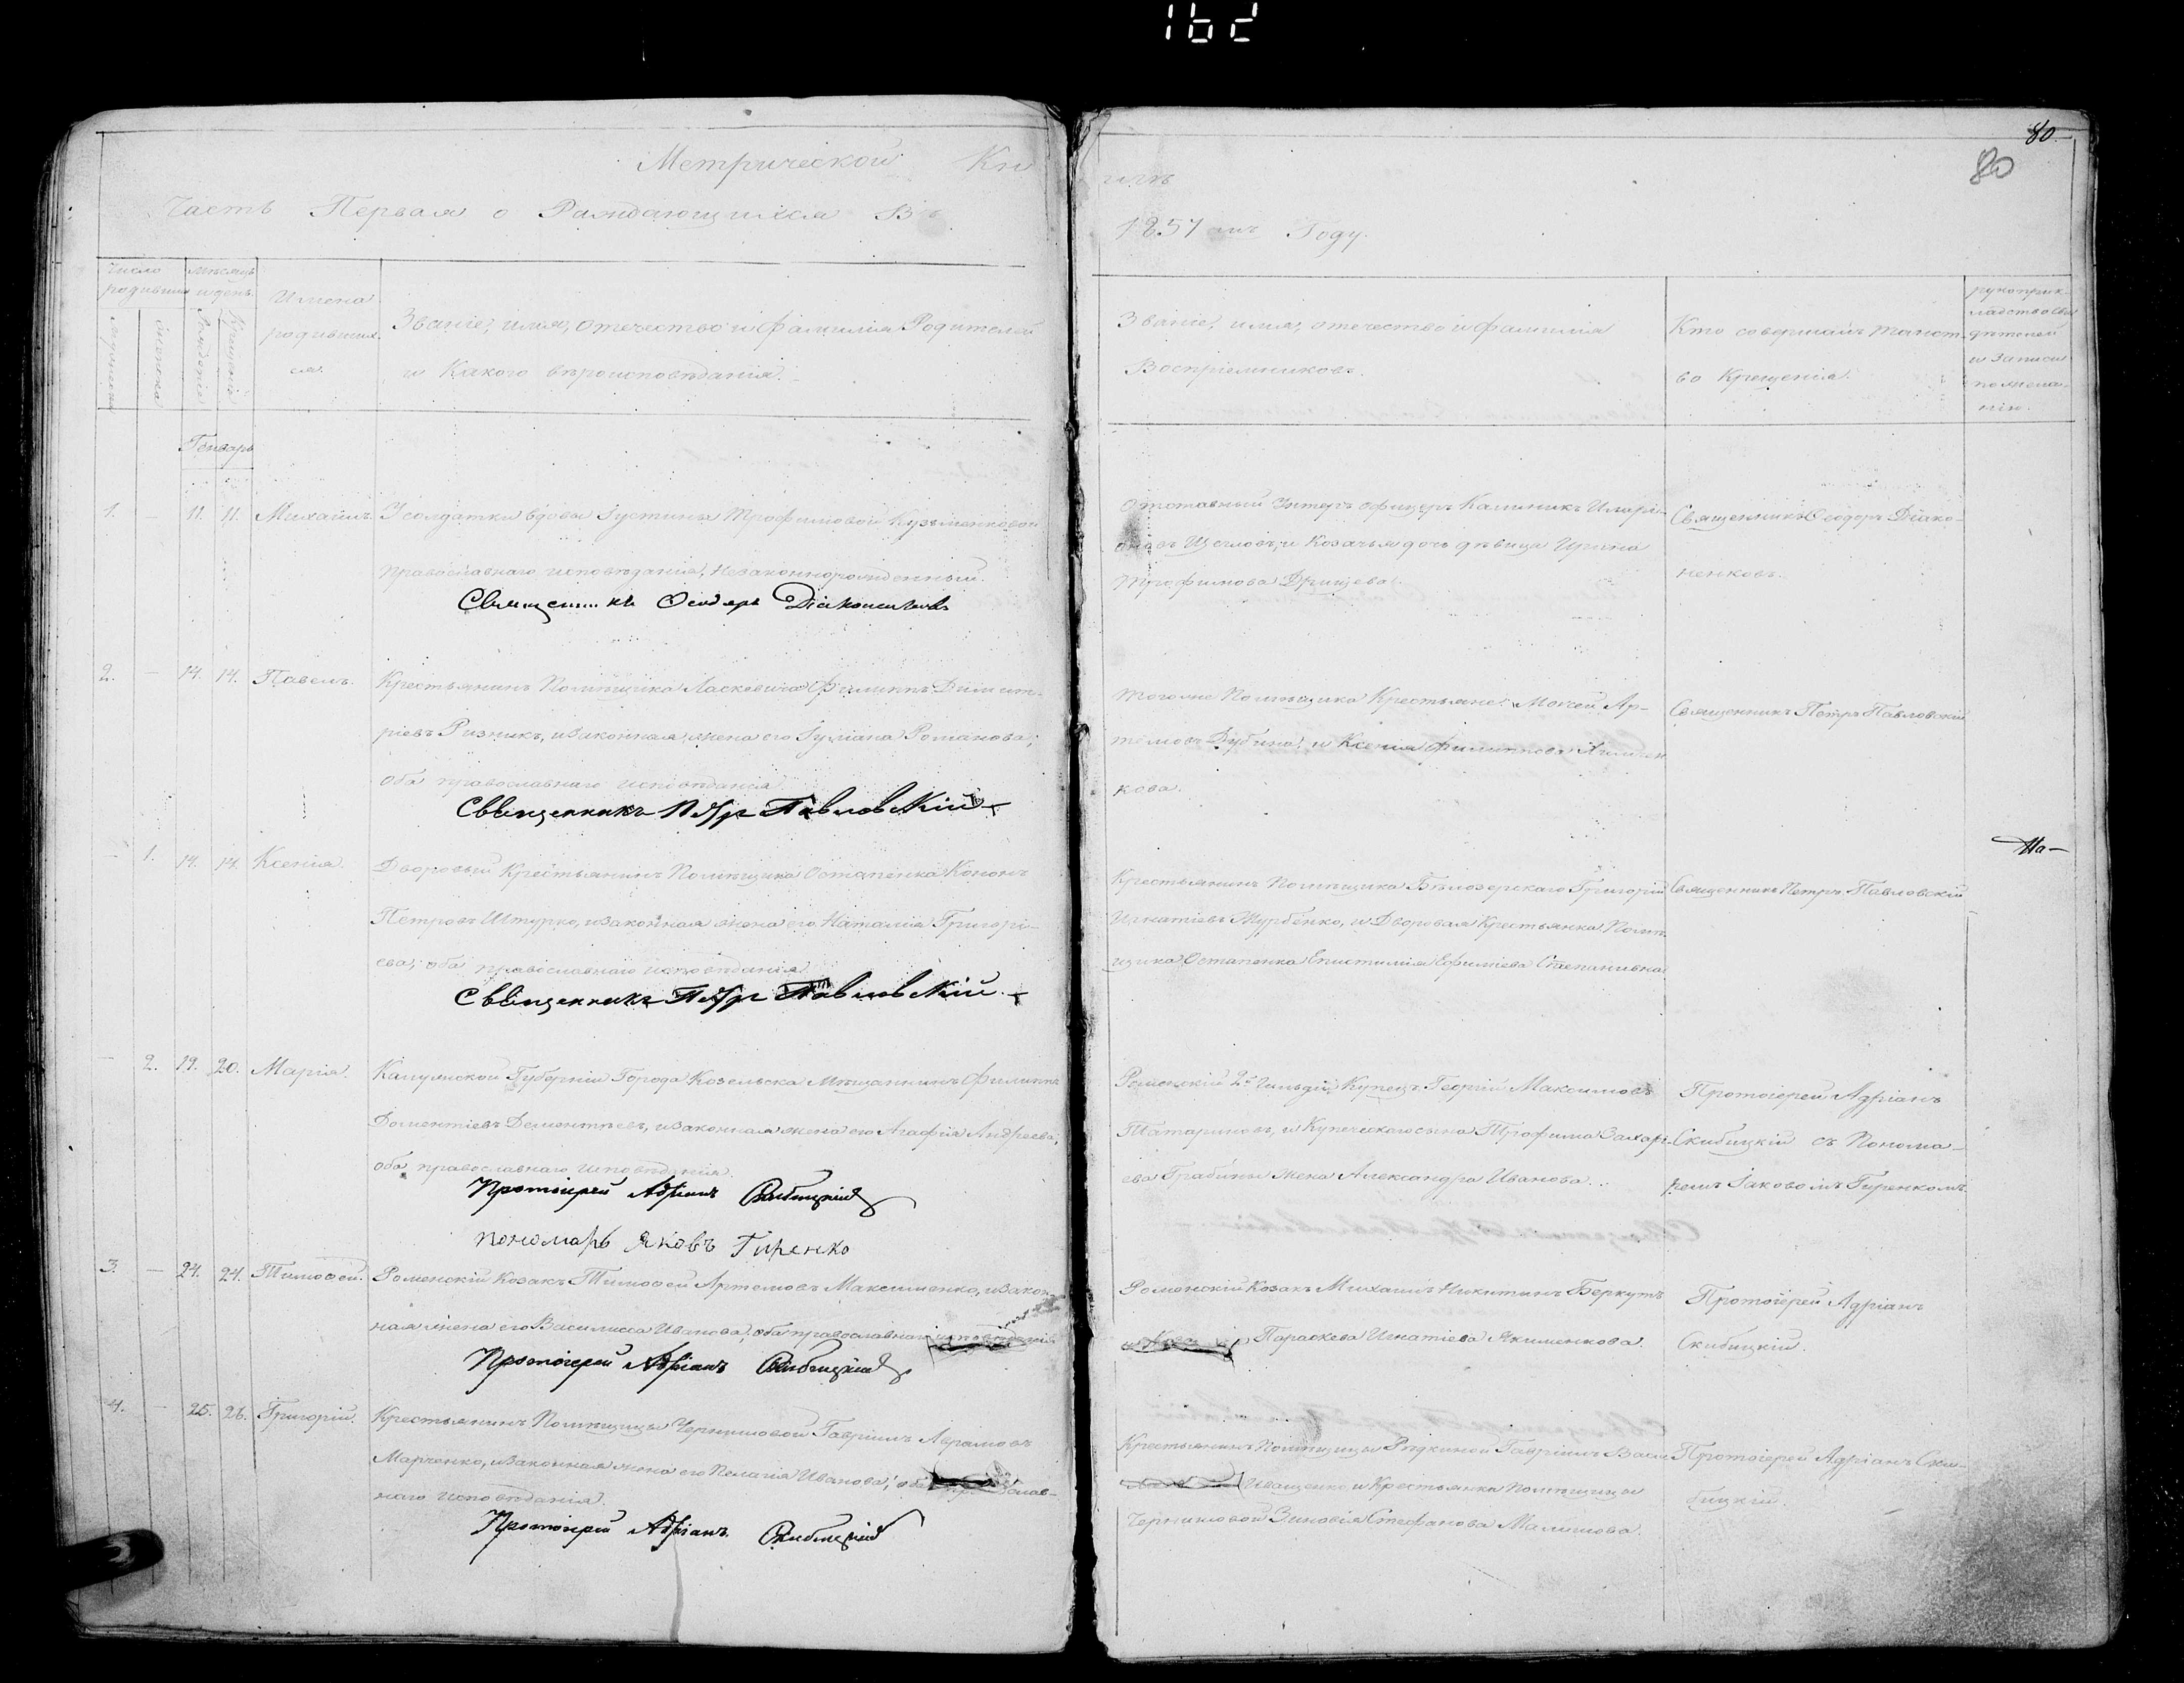 162
80
80
Метрической Кни
ги
Часть Первая о Раждающихся Въ
1857 мъ Году.
Число родивших
мѣсяцъ и день
мужеска
женска
Рожденія
Крещенія
Имена
родивших
ся.
Званіе, имя, отечество и фамилія Родителей
и Какого вѣроисповѣданія.
Званіе, имя, отечество и фамилія
Воспріемниковъ.
Кто совершалъ таинст-
во Крещенія.
рукоприк-
ладство сви
дѣтелей
и записи
по жела-
нію.
Генварь
1. — 11. 11. Михаилъ. У солдатки вдовы Іустины Трофимовой Кузьменковой
православнаго исповѣданія, Незаконнорожденный.
Священникъ Ѳеодоръ Діаконенковъ
Отставный Унтеръ офицеръ Калиникъ Иларі-
оновъ Щегловъ, и Козачья дочь дѣвица Ирина
Трофимова Дрищева.
Священникъ Ѳеодоръ Діако-
ненковъ.
2. — 14. 14. Павелъ. Крестьянинъ Помѣщика Ласкевича Филиппъ Димит-
ріевъ Ризникъ, и законная жена его Іуліана Романова;
оба православнаго исповѣданія.
Священникъ Петръ Павловскій
Тогоже Помѣщика Крестьяне: Моисей Ар-
темовъ Дубина, и Ксенія Филиппова
кова.
Священникъ Петръ Павловскій
— 1. 14. 14. Ксенія. Дворовый Крестьянинъ Помѣщика Остапенка Кононъ
Петровъ Штурко, и законная жена его Наталія Григорі-
ева; оба православнаго исповѣданія.
Священникъ Петръ Павловскій
Крестьянинъ Помѣщика Бѣлозерскаго Григорій
Игнатіевъ Журбенко, и Дворовая Крестьянка Помѣ-
щика Остапенка Епистимія Ефиміева Степанивна
Священникъ Петръ Павловскій
На-
— 2. 19. 20. Марія. Калужской Губерніи Города Козельска Мѣщанинъ Филиппъ
Доментіевъ Дементьевъ, и законная жена его Агафія Андреева;
оба православнаго исповѣданія.
Протоіерей Адріанъ Скибицкій
пономарь Яковъ Гиренко
Роменскій 2й гильдіи Купецъ Георгій Максимовъ
Татариновъ, и Купеческаго сына Трофима Захарі-
ева Грабины жена Александра Иванова.
Протоіерей Адріанъ
Скибицкій съ Понома-
ремъ Іаковомъ Гиренкомъ.
3. — 24. 24. Тимоѳей. Роменскій Козакъ Тимоѳей Артемовъ Максименко, и закон-
ная жена его Василисса Иванова; оба православнаго исповѣданія
Протоіерей Адріанъ Скибицкій
Роменскій Козакъ Михаилъ Никитинъ Беркутъ
Параскева Игнатіева Якименкова.
Протоіерей Адріанъ
Скибицкій.
4. — 25. 26. Григорій. Крестьянинъ Помѣщицы Чернышовой Гавріилъ Аврамовъ
Марченко, и законная жена его Пелагія Иванова; оба православ-
наго исповѣданія.
Протоіерей Адріанъ Скибицкій
Крестьянинъ Помѣщицы Рѣдкиной Гавріилъ Васи
Иващенко, и Крестьянка Помѣщицы
Чернышовой Зиновія Стефанова Малишова.
Протоіерей Адріанъ Ски-
бицкій.